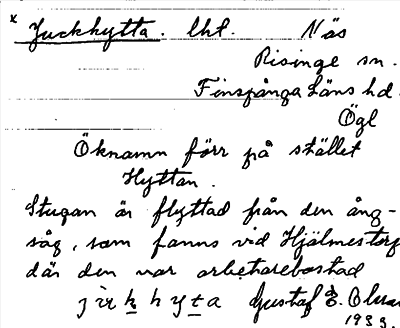 x Juckhytta. lht. Näs
Risinge sn.
Finspånga läns hd.
Ögl
Öknamn förr på stället
Hyttan.
Stugan är flyttad från den ång-
såg, som fanns vid Hjälmestorp
där den var arbetarebostad
Gustaf E. Olsson
1933.